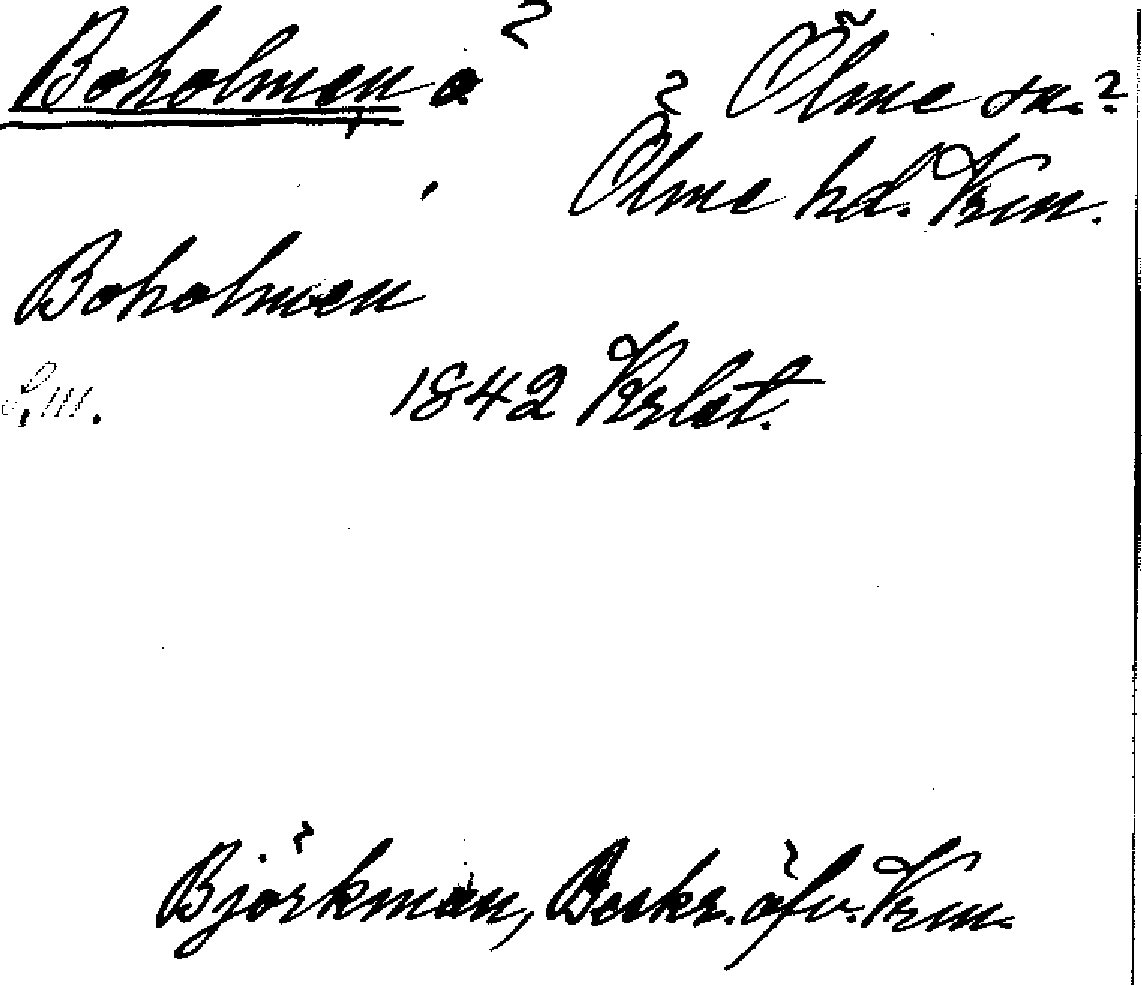 Boholmen, ö Ölme sn.?
Ölme hd. Vrm.
Boholmen
1842 Krlst.
Björkman, Beskr. öfv. Vrm.